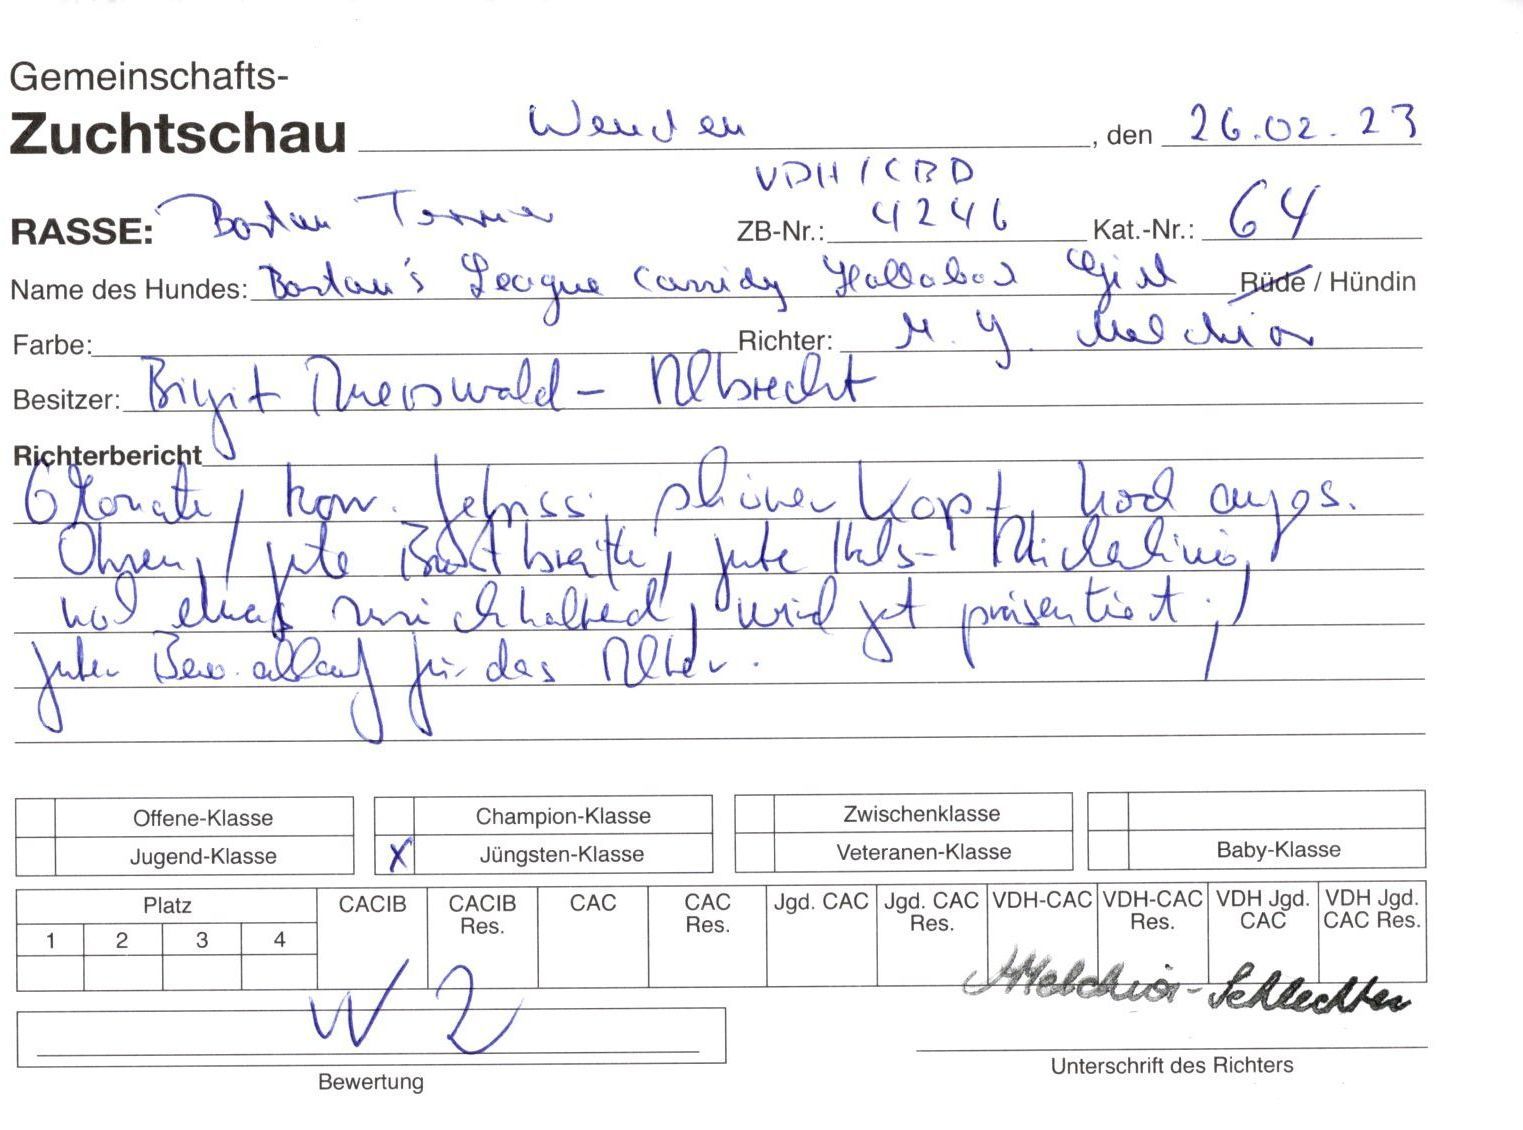 Gemeinschafts-
Zuchtschau Wenden, den 26.02.23
VDH/CBD
RASSE: Boston Terrier ZB-Nr.: 4246 Kat.-Nr.: 64
Name des Hundes: Boston's League Cassidy Hollaback Girl Rüde / Hündin
Farbe: Richter: M. Y. Melchior
Besitzer: Birgit Auerswald-Albrecht
Richterbericht
6 Monate, korr. Gebiss, schöner Kopf, hoch anges.
Ohren, gute Brustbreite, gute Hals-
noch etwas zurückhaltend, wird gut präsentiert,
guter Bew.ablauf für das Alter.
Offene-Klasse Champion-Klasse Zwischenklasse
Jugend-Klasse X Jüngsten-Klasse Veteranen-Klasse Baby-Klasse
Platz CACIB CACIB Res. CAC CAC Res. Jgd. CAC Jgd. CAC Res. VDH-CAC VDH-CAC Res. VDH Jgd. CAC VDH Jgd. CAC Res.
1 2 3 4
Melchior-Schlechter
W 2
Unterschrift des Richters
Bewertung